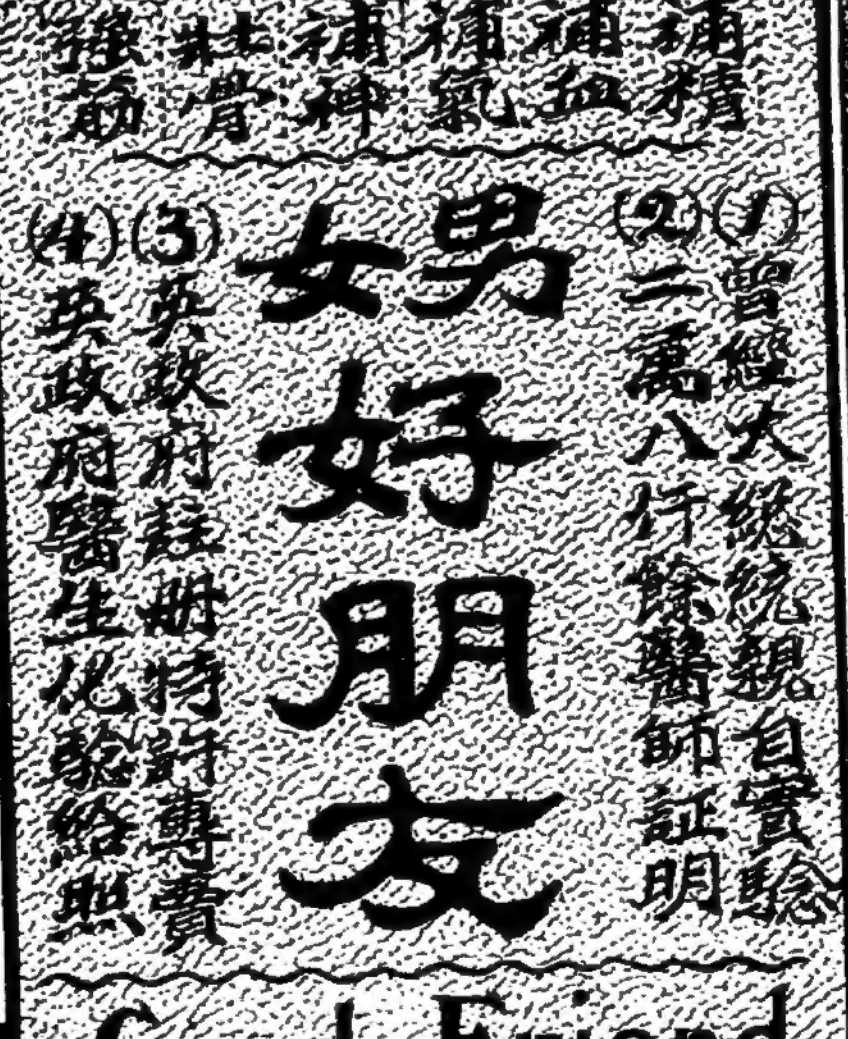 補精
補血
補氣
補神
壯骨
強筋
(1)曾經大總統親自實驗
(2)二萬八仟餘醫師証明
男女
好朋友
(3)英政府註册特許專賣
(4)英政府醫生化驗給照
Friend